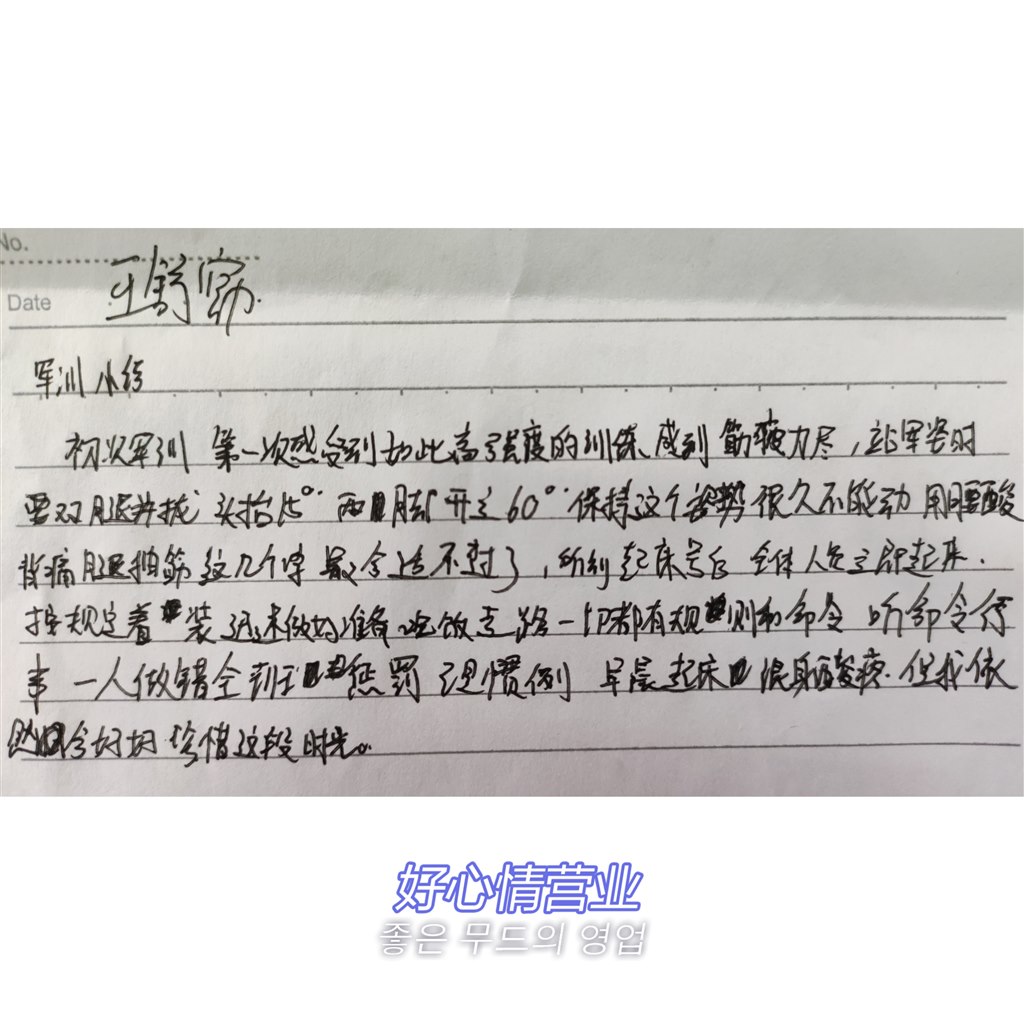 No.
Date 王舒
军训小结
初次军训 第一次感受到如此高强度的训练,感到筋疲力尽,站军姿时
要双腿并拢 头抬15° 两脚开立60° 保持这个姿势很久不能动 用腰酸
背痛腿抽筋这几个字最合适不过了,听到起床号后 全体人员立即起来.
按规定着装 还未做好准备 吃饭走路一切都有规则和命令 听命令行
事 一人做错全 惩罚 是惯例 早晨起床 浑身酸疼.但我依
然会好好珍惜这段时光。
好心情营业
좋은 무드의 영업